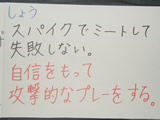 しょう
スパイクでミートして
失敗しない。
自信をもって
攻撃的なプレーをする。